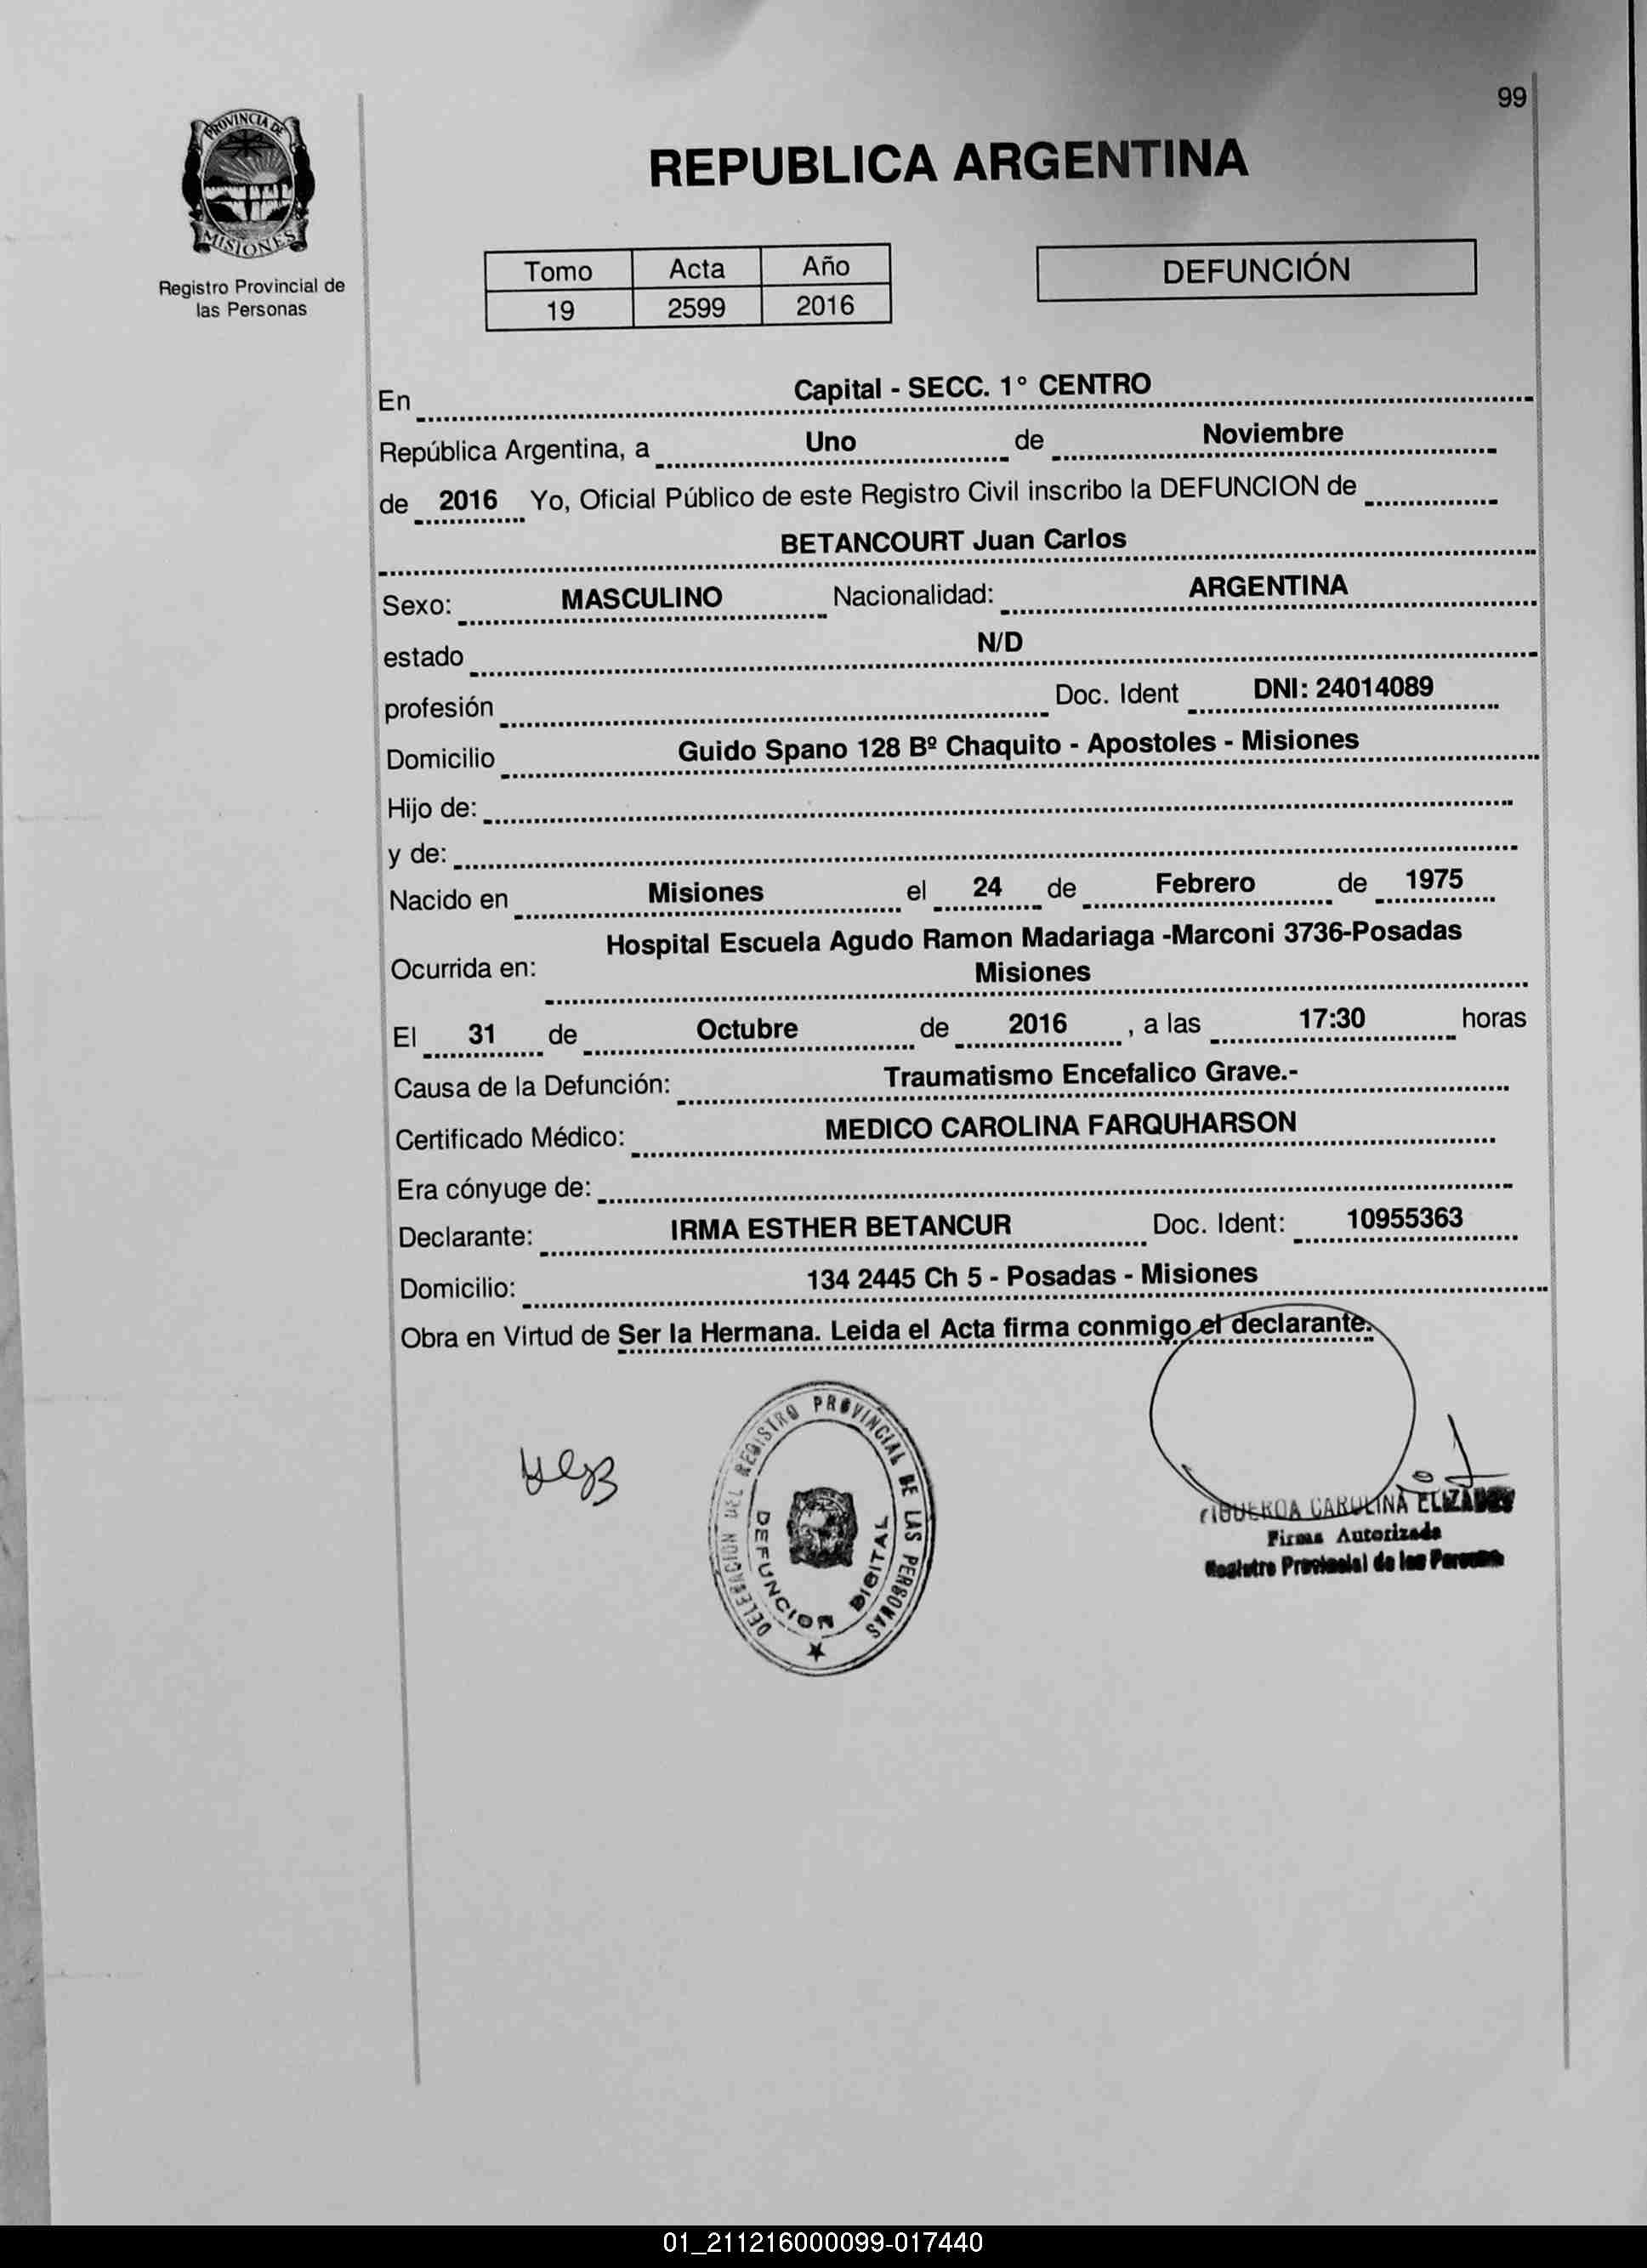 99
PROVINCIA DE
MISIONES
Registro Provincial de
las Personas
REPUBLICA ARGENTINA
Tomo Acta Año
19 2599 2016
DEFUNCIÓN
En Capital - SECC. 1° CENTRO
República Argentina, a Uno de Noviembre
de 2016 Yo, Oficial Público de este Registro Civil inscribo la DEFUNCION de
BETANCOURT Juan Carlos
Sexo: MASCULINO Nacionalidad: ARGENTINA
estado N/D
profesión Doc. Ident DNI: 24014089
Domicilio Guido Spano 128 Bº Chaquito - Apostoles - Misiones
Hijo de:
y de:
Nacido en Misiones el 24 de Febrero de 1975
Hospital Escuela Agudo Ramon Madariaga -Marconi 3736-Posadas
Ocurrida en: Misiones
El 31 de Octubre de 2016 , a las 17:30 horas
Causa de la Defunción: Traumatismo Encefalico Grave.-
Certificado Médico: MEDICO CAROLINA FARQUHARSON
Era cónyuge de:
Declarante: IRMA ESTHER BETANCUR Doc. Ident: 10955363
Domicilio: 134 2445 Ch 5 - Posadas - Misiones
Obra en Virtud de Ser la Hermana. Leida el Acta firma conmigo el declarante.
DELEGACION DEL REGISTRO PROVINCIAL DE LAS PERSONAS
DEFUNCION DIGITAL
FIGUEROA CAROLINA
Firma Autorizada
Registro Provincial de las Personas
01_211216000099-017440